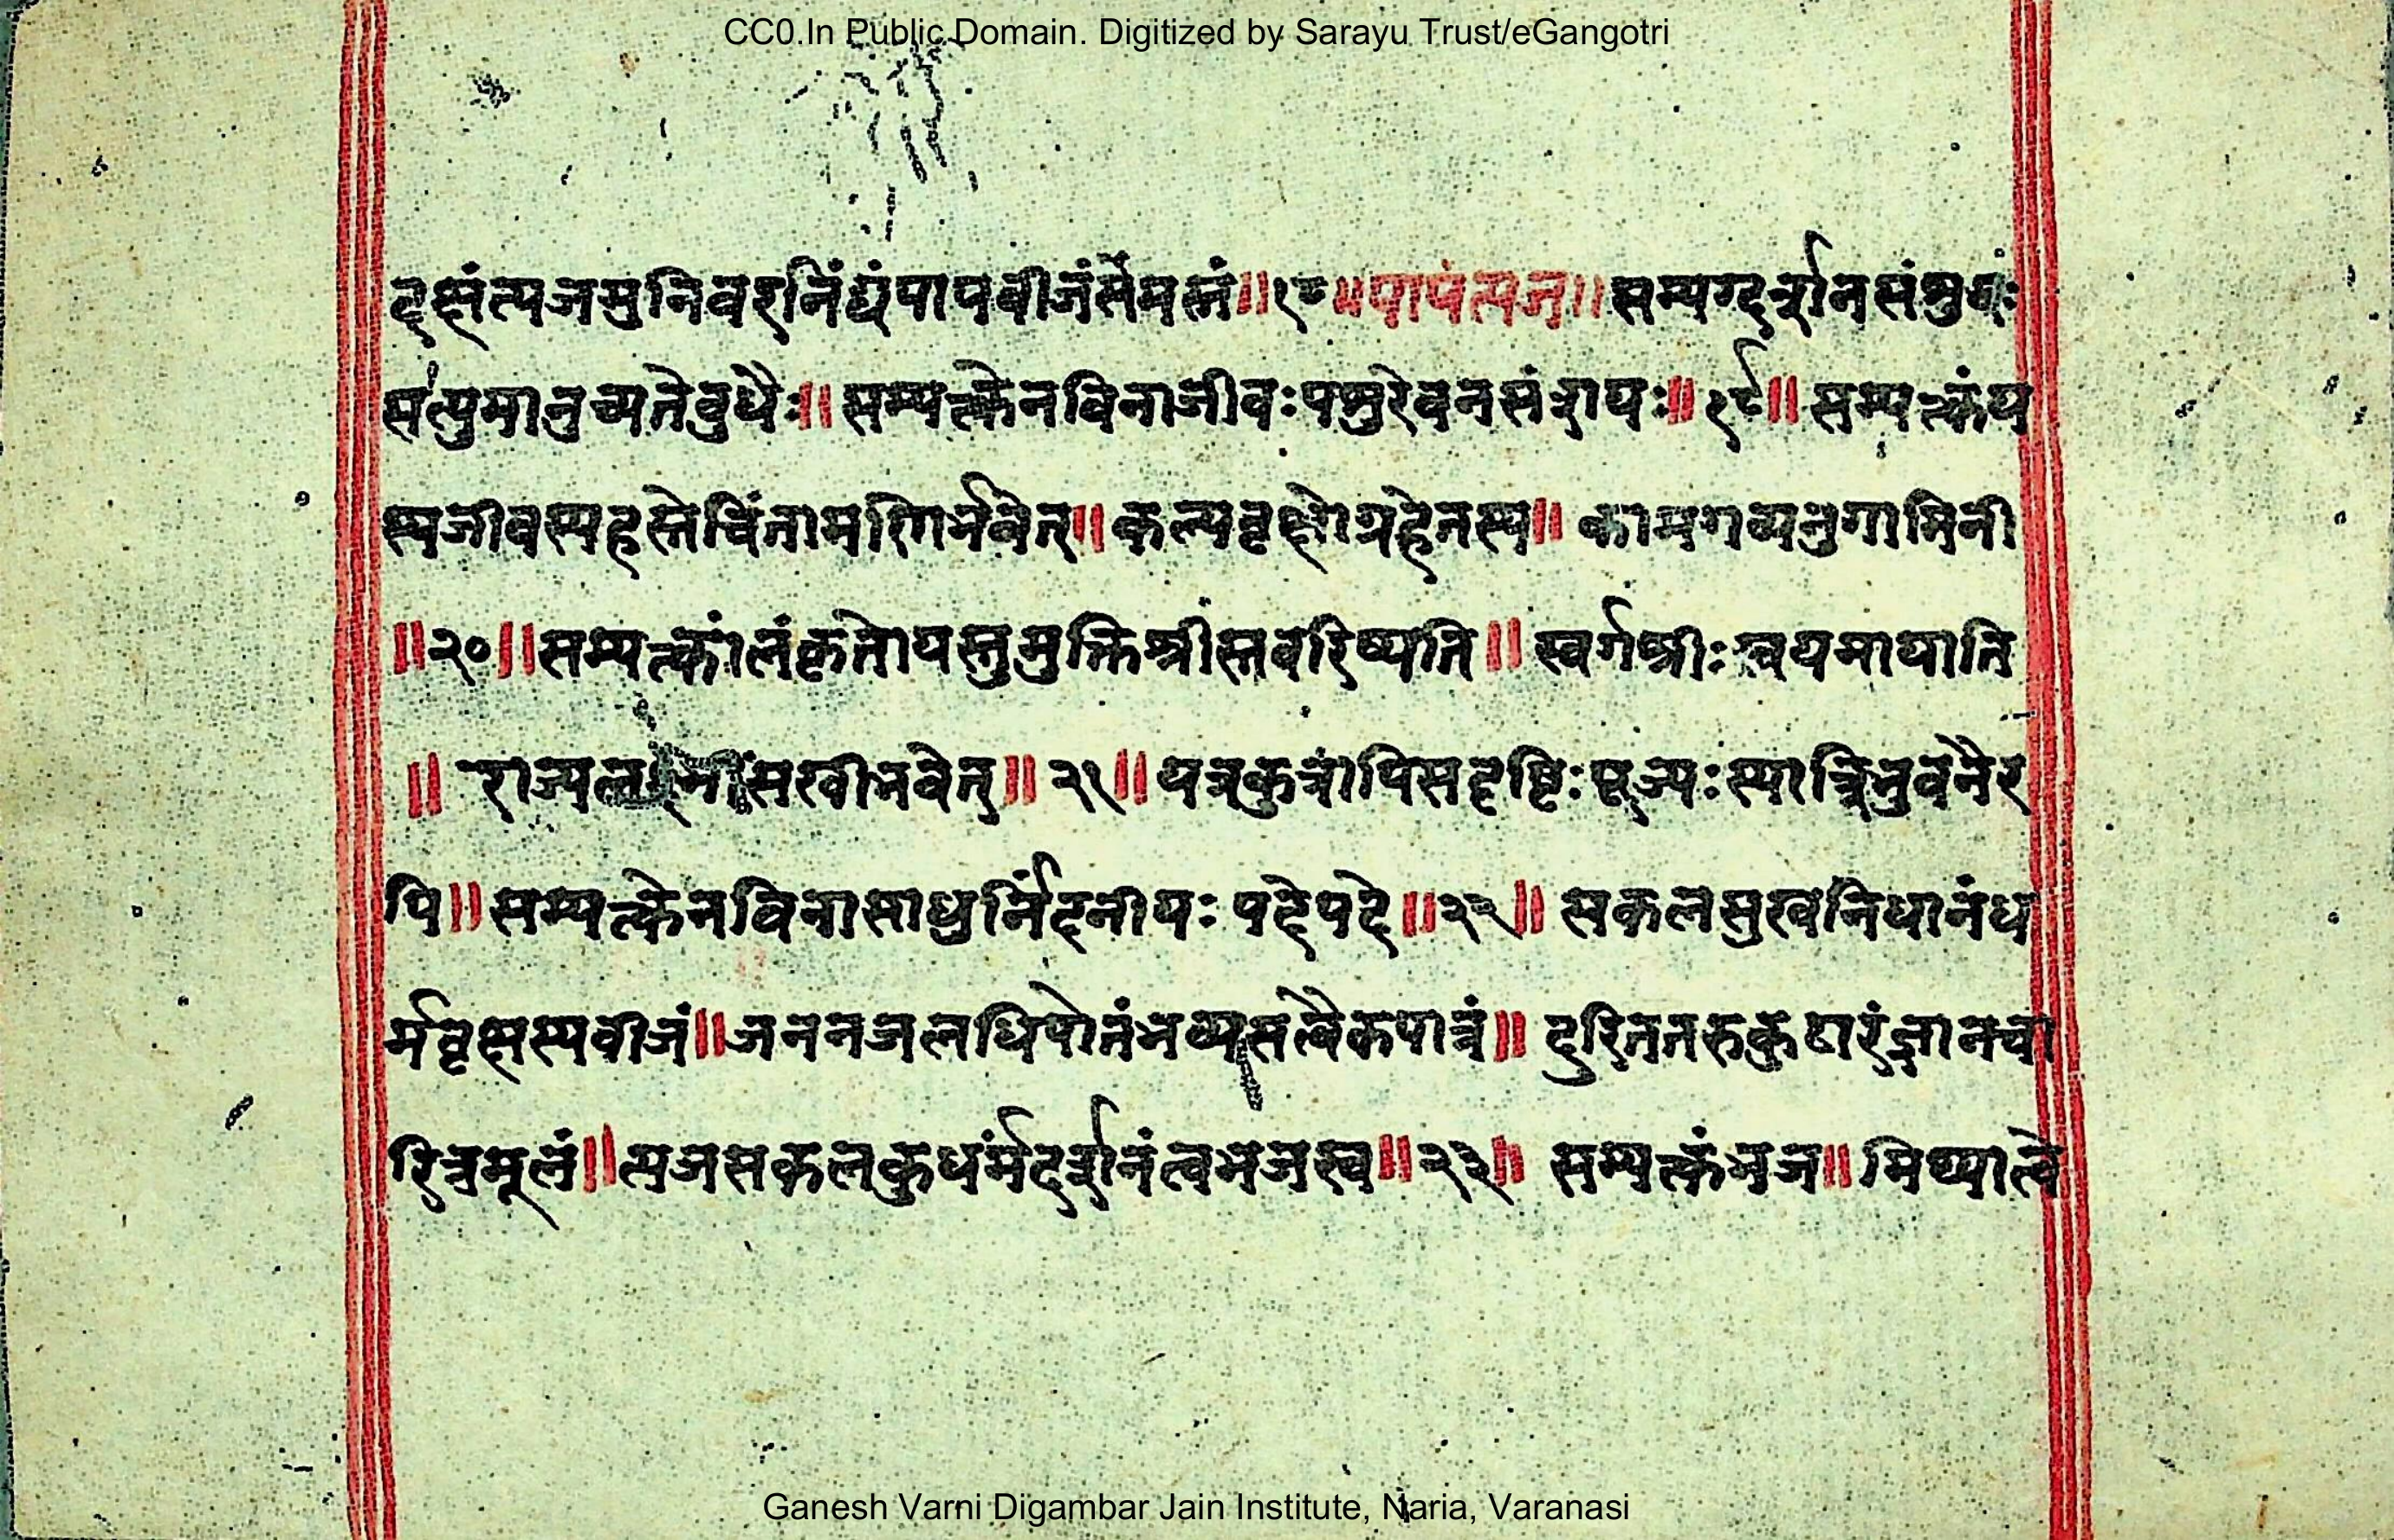 CC0.In Public Domain. Digitized by Sarayu Trust/eGangotri
वृक्षंत्यजमुनिवरनिंद्यंपापबीजंसमस्तं॥१८॥पापंत्यज॥सम्यग्दर्शनसंशुद्धः
सत्पुमानुच्यतेबुधैः॥सम्यत्क्वेनविनाजीवःपशुरेवनसंशयः॥१९॥सम्यत्क्वंय
स्यजीवस्यहस्तेचिंतामणिर्भवेत्॥कल्पवृक्षोग्रहेतस्य॥कामगव्यनुगामिनी
॥२०॥सम्यत्क्वालंकृतोयस्तुमुक्तिश्रीस्तंवरिष्यति॥स्वर्गश्रीःस्वयमायाति
॥राज्यलक्ष्मीसखीभवेत्॥२१॥यत्रकुत्रापिसदृष्टिःपूज्यःस्यात्रिभुवनैर
पि॥सम्यत्क्वेनविनासाधुर्निंदनीयःपदेपदे॥२२॥सकलसुखनिधानंध
र्मवृक्षस्यबीजं॥जननजलधिपोतंभव्यसत्वैकपात्रं॥दुरिततरुकुठारंज्ञानचा
रित्रमूलं॥त्यजसकलकुधंर्मदर्शनंत्वंभजस्व॥२३॥सम्यत्क्वंभज॥मिथ्यात्वे
Ganesh Varni Digambar Jain Institute, Naria, Varanasi